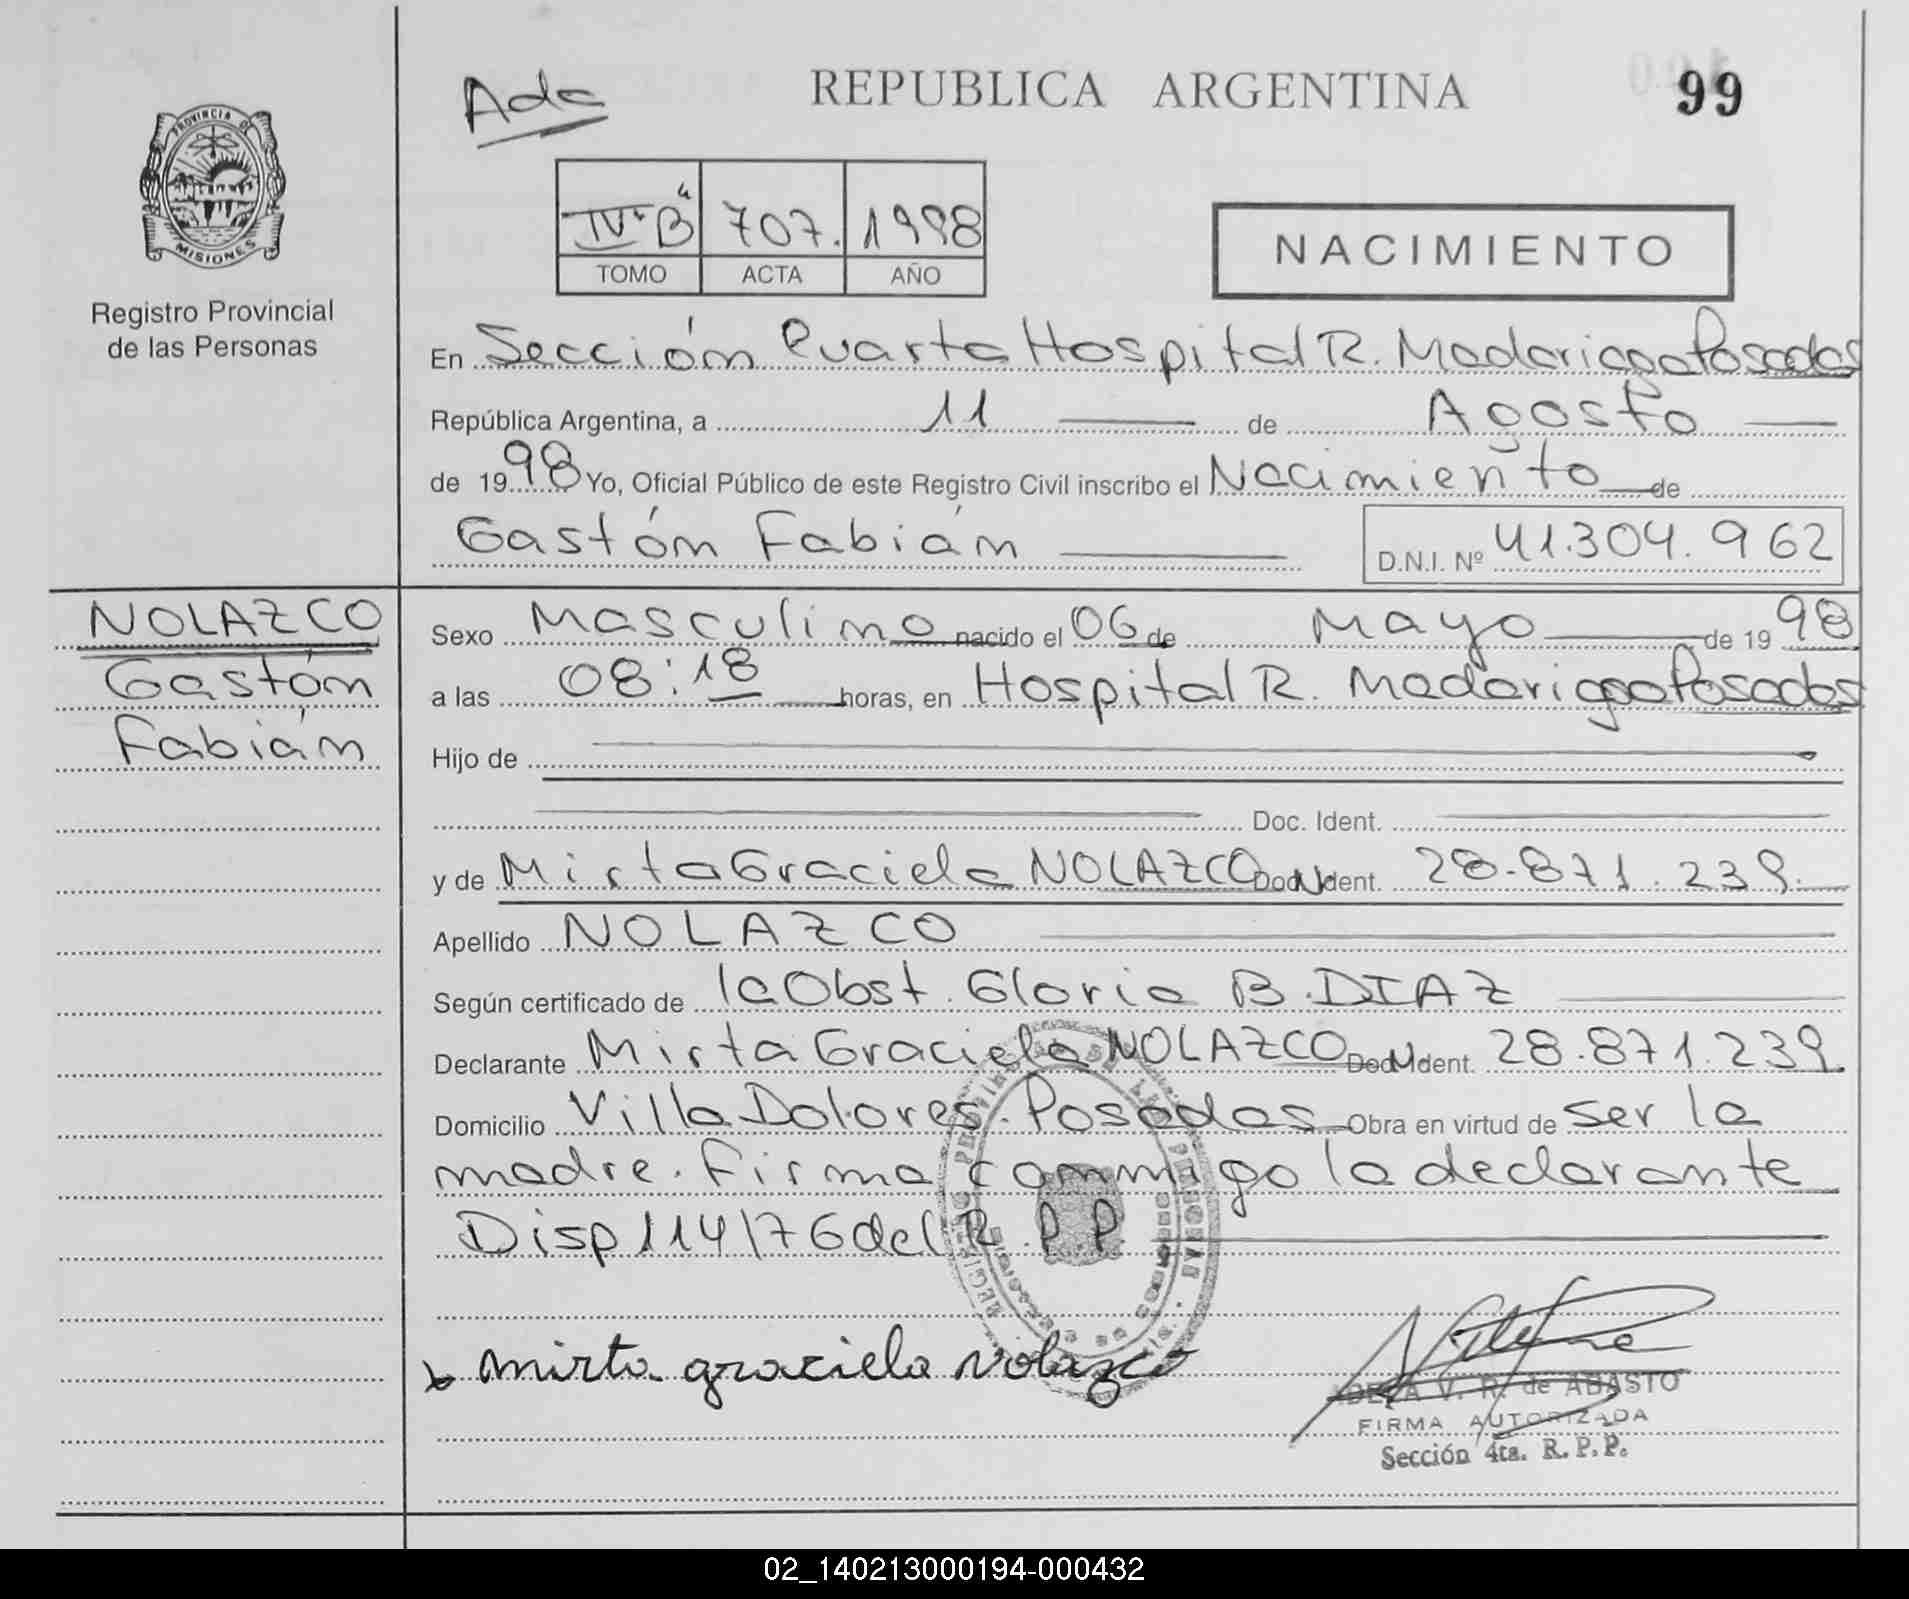 Ada
REPUBLICA ARGENTINA
99
PROVINCIA DE
MISIONES
Registro Provincial
de las Personas
IV "B" 707. 1998
TOMO ACTA AÑO
NACIMIENTO
En Sección Cuarta Hospital R. Madariaga Posadas
República Argentina, a 11 de Agosto
de 1998 Yo, Oficial Público de este Registro Civil inscribo el Nacimiento de
Gastón Fabián D.N.I. Nº 41.304.962
NOLAZCO
Gastón
Fabián
Sexo Masculino nacido el 06 de Mayo de 1998
a las 08:18 horas, en Hospital R. Madariaga Posadas
Hijo de
Doc. Ident.
y de Mirta Graciela NOLAZCO Doc. Ident. 28.871.239.
Apellido NOLAZCO
Según certificado de la Obst. Gloria B. DIAZ
Declarante Mirta Graciela NOLAZCO Doc. Ident. 28.871.239.
Domicilio Villa Dolores. Posadas Obra en virtud de ser la
madre. Firma conmigo la declarante
Disp 114/76 del R.P.P.
mirta graciela Nolazco
ADELA V. R. de ABASTO
FIRMA AUTORIZADA
Sección 4ta. R.P.P.
02_140213000194-000432